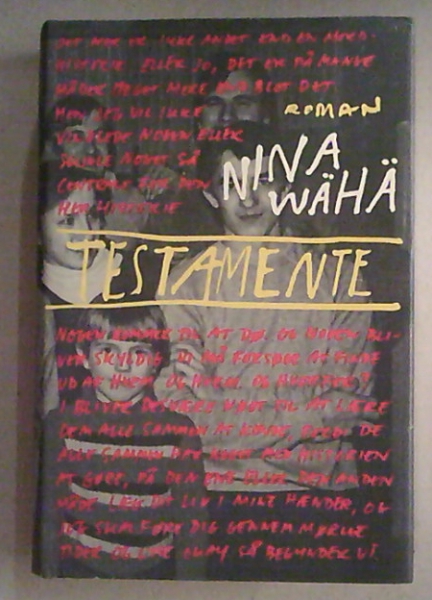 DET HER ER IKKE ANDET END EN MORD-
HISTORIE. ELLER JO, DET ER PÅ MANGE
MÅDER MEGET MERE END BLOT DET.
MEN JEG VIL IKKE
VILDLEDE NOGEN ELLER
SKJULE NOGET SÅ
CENTRALT FOR DEN
HER HISTORIE
ROMAN
NINA
WÄHÄ
TESTAMENTE
NOGEN KOMMER TIL AT DØ. OG NOGEN BLI-
VER SKYLDIG. VI MÅ FORSØGE AT FINDE
UD AF HVEM OG HVEM. OG HVORFOR?
I BLIVER DESVÆRRE NØDT TIL AT LÆRE
DEM ALLE SAMMEN AT KENDE, FORDI DE
ALLE SAMMEN HAR NOGET MED HISTORIEN
AT GØRE, PÅ DEN ENE ELLER DEN ANDEN
MÅDE. LÆG DIT LIV I MINE HÆNDER, OG
JEG SKAL FØRE DIG GENNEM MØRKE
TIDER OG LYSE. OKAY SÅ BEGYNDER VI.